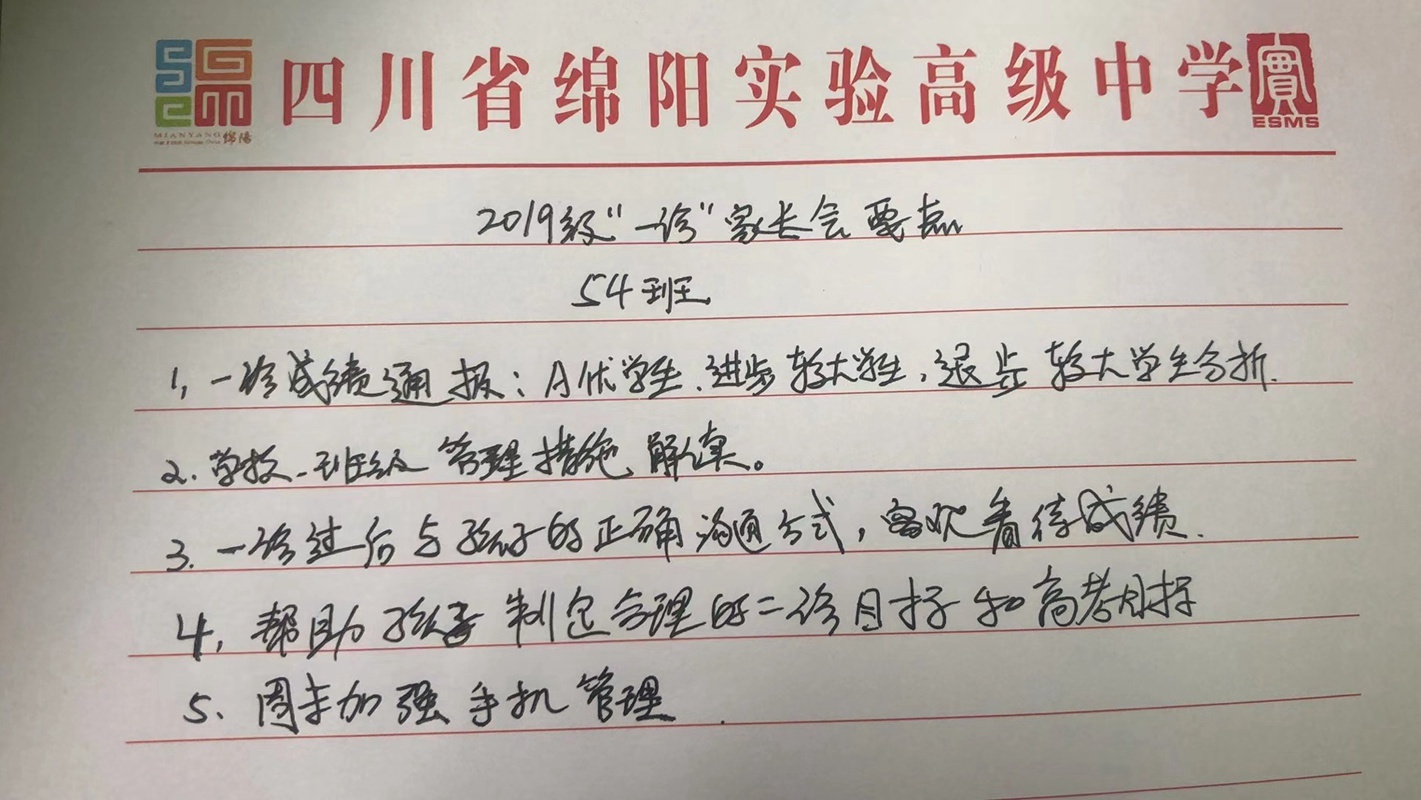 四川省绵阳实验高级中学
ESMS
MIANYANG 绵阳
2019级"一诊"家长会要点
54班
1, 一诊成绩通报：A优学生、进步较大学生，退步较大学生分析.
2. 学校、班级管理措施解读。
3. 一诊过后与孩子的正确沟通方式，客观看待成绩.
4, 帮助孩子制定合理的二诊目标和高考目标
5、周末加强手机管理.